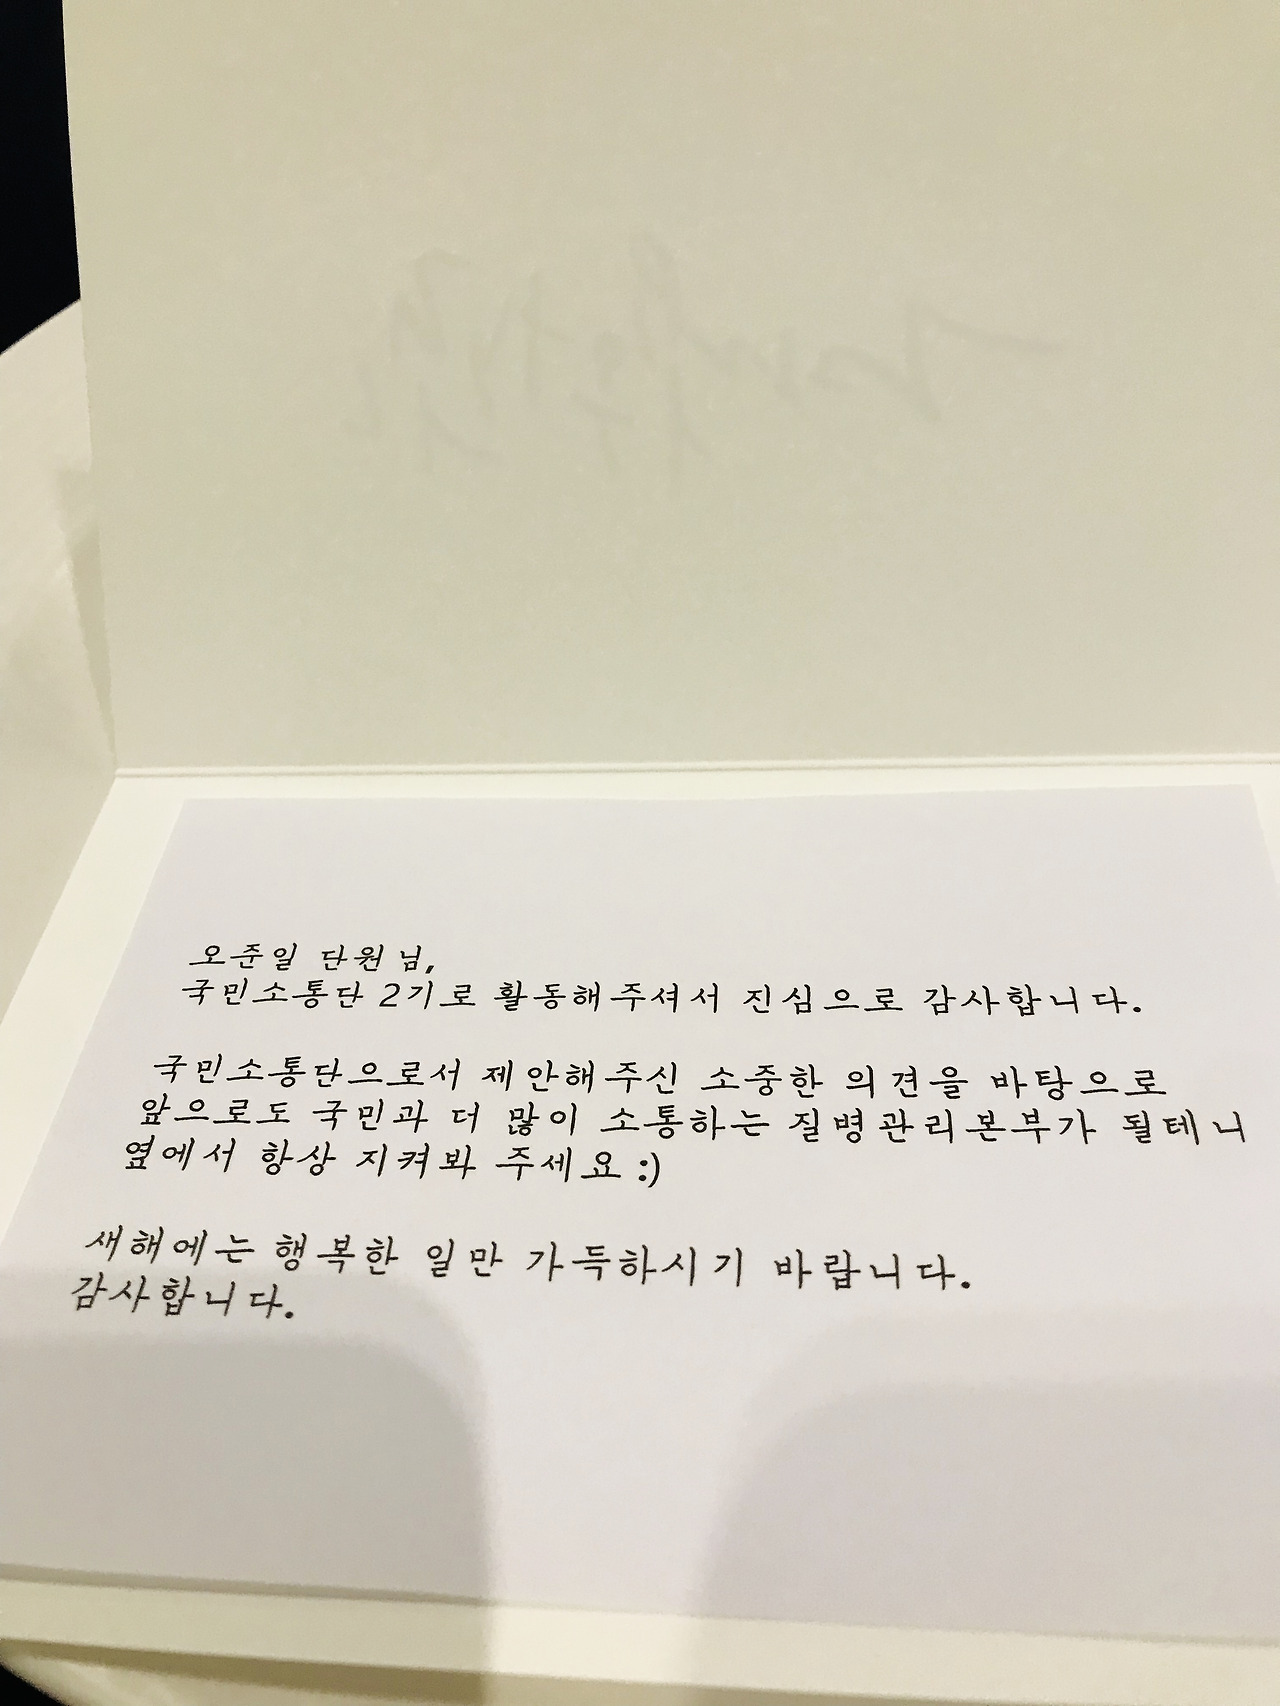 오준일 단원님,
국민소통단 2기로 활동해주셔서 진심으로 감사합니다.
국민소통단으로서 제안해주신 소중한 의견을 바탕으로
앞으로도 국민과 더 많이 소통하는 질병관리본부가 될테니
옆에서 항상 지켜봐 주세요 :)
새해에는 행복한 일만 가득하시기 바랍니다.
감사합니다.